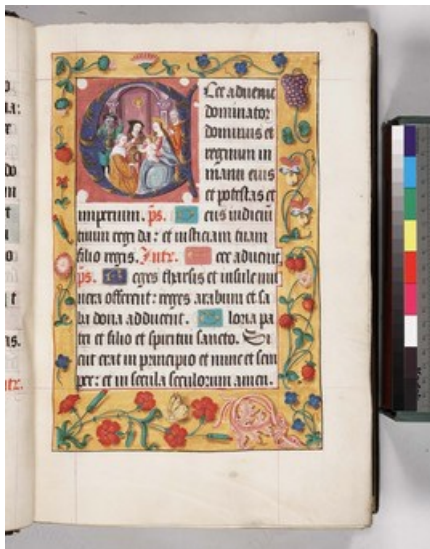 Ecce advenit
dominator
dominus et
regnum in
manu eius
et potestas et
imperium. ps. eus iudiciū
tuum regi da: et iusticiam tuam
filio regis. Intr. cce advenit
ps. eges tharsis et insule mu
nera offerent: reges arabum et sa
ba dona adducent. loria pa
tri et filio et spiritui sancto. Si
cut erat in principio et nunc et sem
per: et in secula seculorum amen.